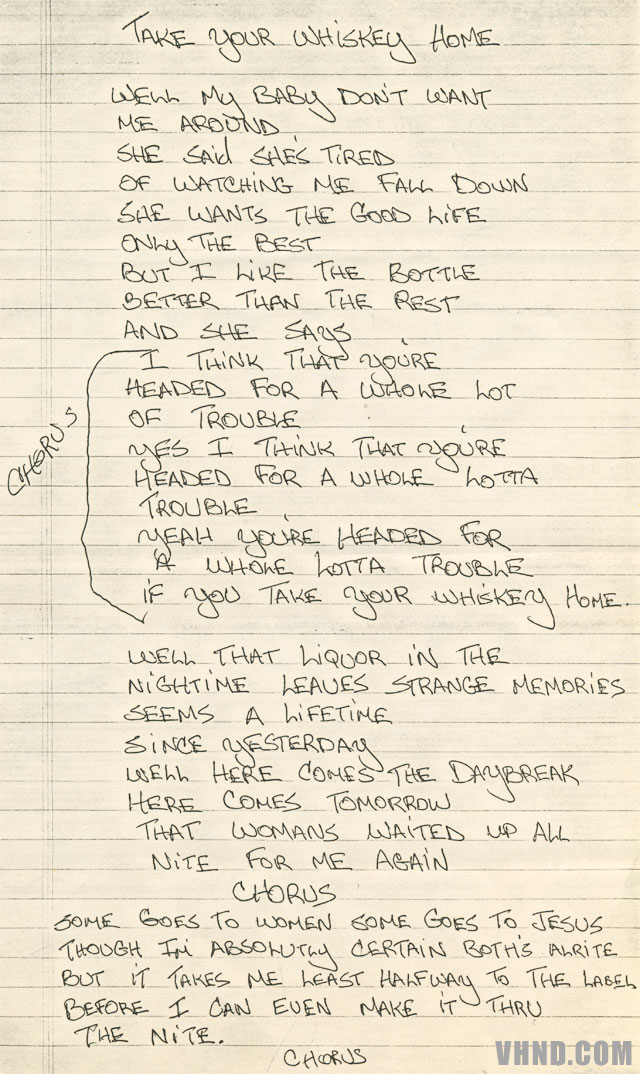 TAKE YOUR WHISKEY HOME
WELL MY BABY DON'T WANT
ME AROUND
SHE SAID SHE'S TIRED
OF WATCHING ME FALL DOWN
SHE WANTS THE GOOD LIFE
ONLY THE BEST
BUT I LIKE THE BOTTLE
BETTER THAN THE REST
AND SHE SAYS
I THINK THAT YOU'RE
HEADED FOR A WHOLE LOT
OF TROUBLE
YES I THINK THAT YOU'RE
HEADED FOR A WHOLE LOTTA
TROUBLE
YEAH YOU'RE HEADED FOR
A WHOLE LOTTA TROUBLE
IF YOU TAKE YOUR WHISKEY HOME.
CHORUS
WELL THAT LIQUOR IN THE
NIGHTIME LEAVES STRANGE MEMORIES
SEEMS A LIFETIME
SINCE YESTERDAY
WELL HERE COMES THE DAYBREAK
HERE COMES TOMORROW
THAT WOMANS WAITED UP ALL
NITE FOR ME AGAIN
CHORUS
SOME GOES TO WOMEN SOME GOES TO JESUS
THOUGH I'M ABSOLUTLY CERTAIN BOTH'S ALRITE
BUT IT TAKES ME LEAST HALFWAY TO THE LABEL
BEFORE I CAN EVEN MAKE IT THRU
THE NITE.
CHORUS
VHND.COM